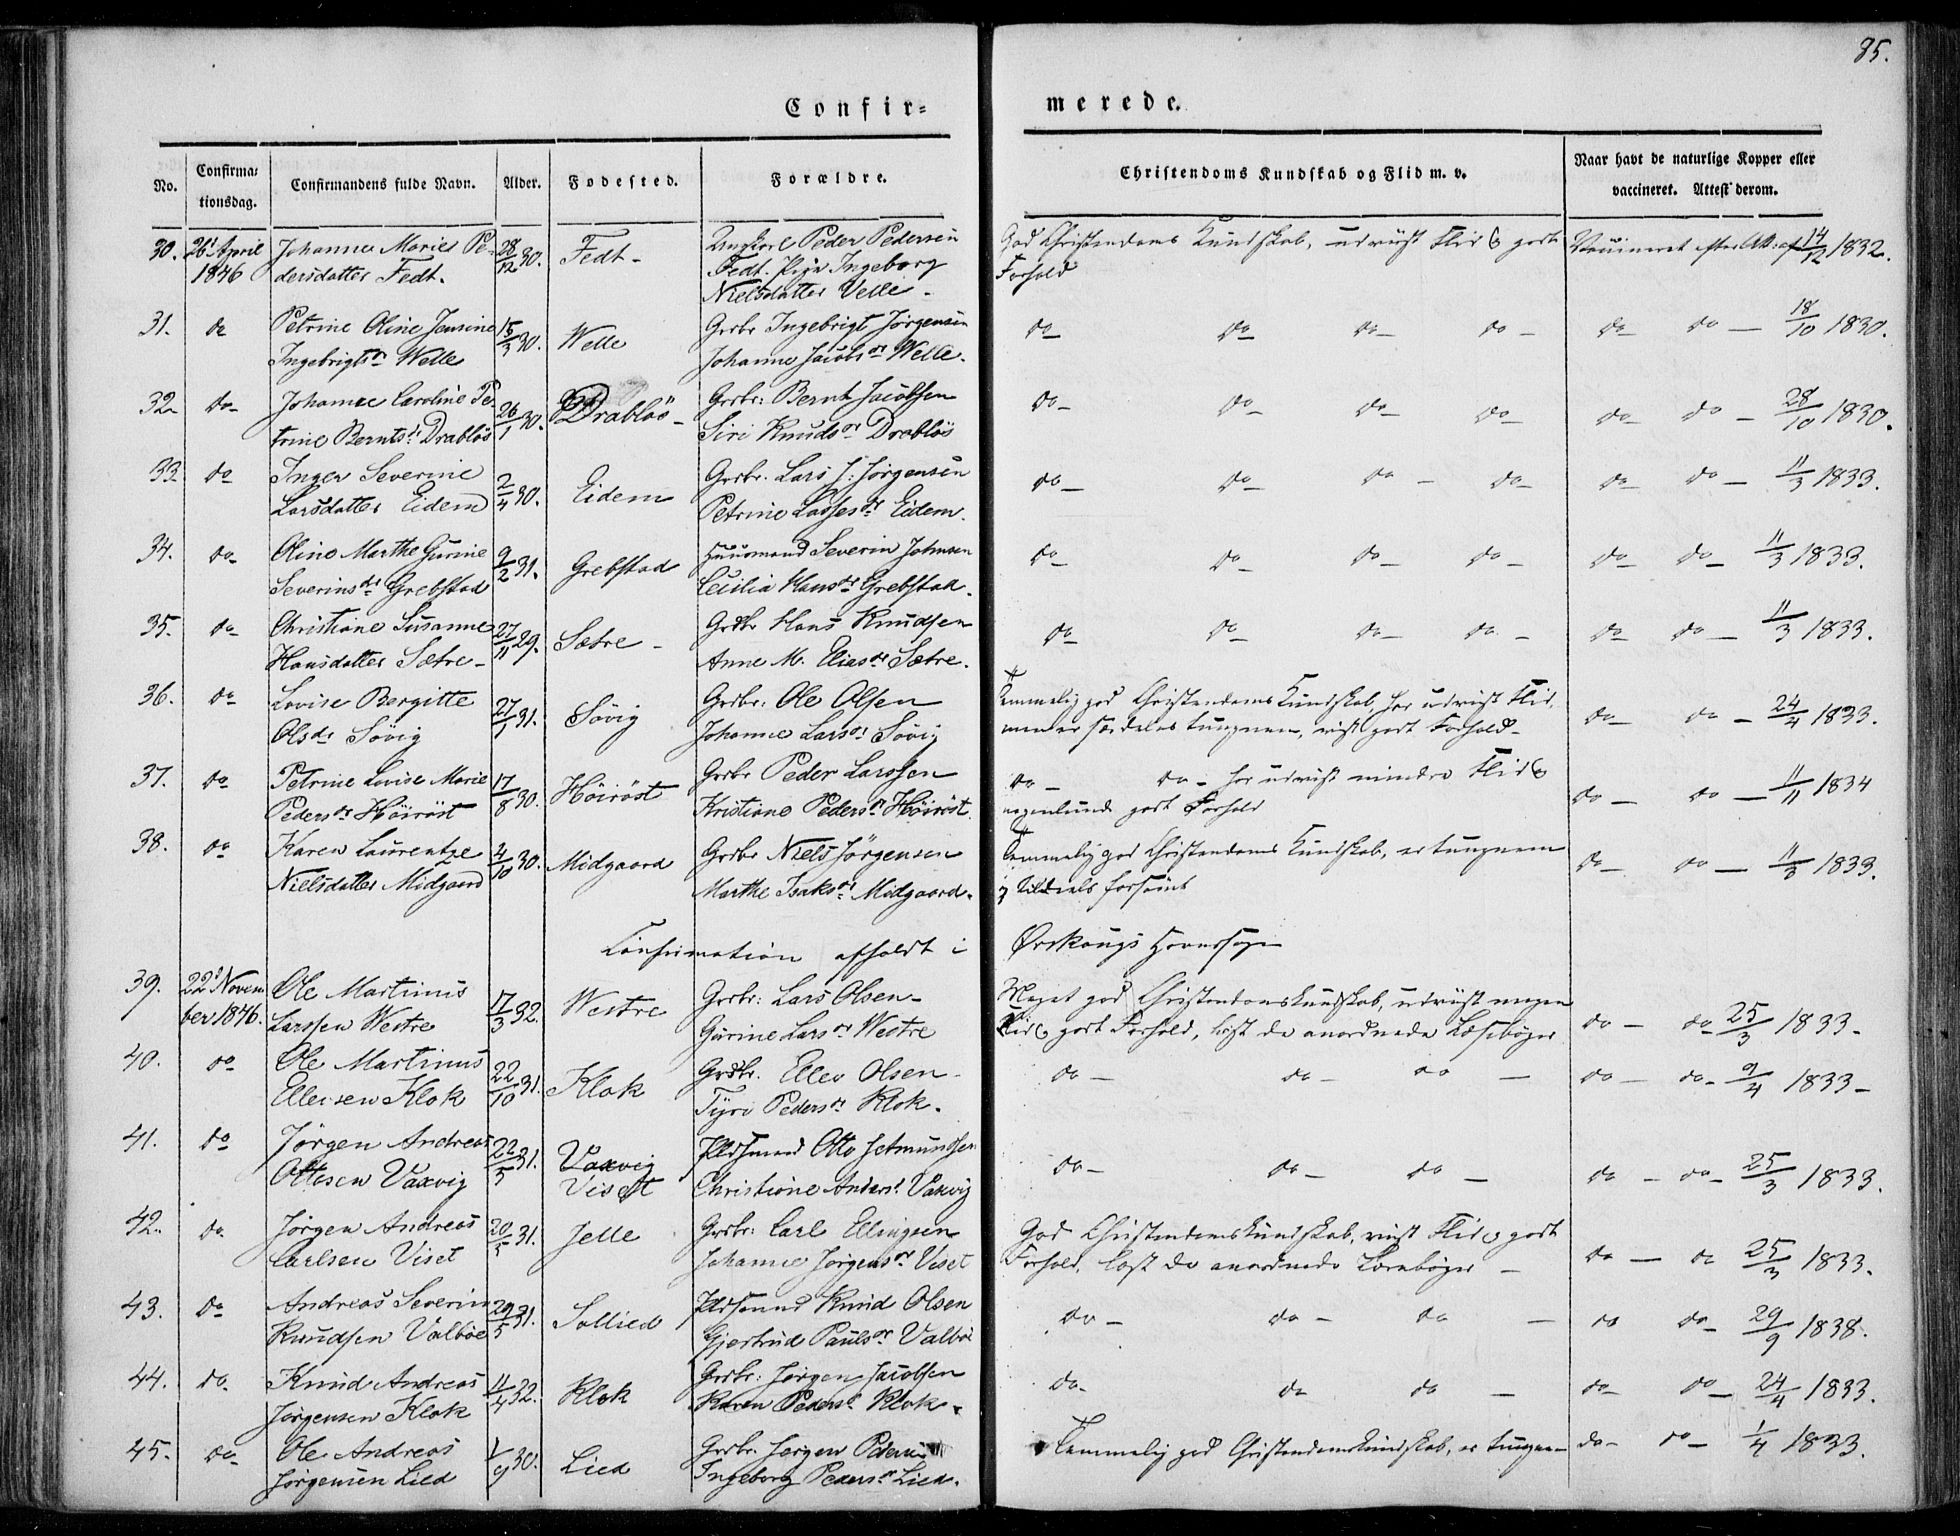 85.
Confir=
merede.
No.
Confirma=
tionsdag.
Confirmandens fulde Navn.
Alder.
Fødested.
Forældre.
Christendoms Kundskab og Flid m. v.
Naar havt de naturlige Kopper eller
vaccineret. Attest derom.
30. 26' April Johanne Marie Pe- 28/12 30. Fedt - Ungkarl Peder Pedersen God Christendoms Kundskab, udviist Flid & godt Vaccineret efter Att: af 14/12 1832.
1846 dersdatter Fedt. Fedt. Pige Ingeborg Forhold
Nielsdatter Velle -
31. do Petrine Oline Jensine 15/3 30. Welle Grdbr Ingebrigt Jørgensen do - do - do - do - do - do - 18/10 1830.
Ingebrigtsdr Welle Johanne Jacobsdr Welle.
32. do - Johanne Caroline Pe- 26/1 30. Drabløs - Grdbr: Bernt Jacobsen do - do - do - do - do - do - 28/10 1830.
trine Berntsdr Drabløs Siri Knudsdr Drabløs
33 do Inger Severine 2/4 30. Eidem Grdbr. Lars J: Jørgensen do - do - do - do - do - do - 11/3 1833.
Larsdatter Eidem Petrine Lassesdr Eidem.
34. do - Oline Marthe Gurine 9/2 31. Grebstad Huusmand Severin Johnsen do - do - do - do - do - do - 11/3 1833.
Severinsdr Grebstad Cecilia Hansdr Grebstad.
35. do - Christiane Susanne 27/11 29. Sætre - Grdbr Hans Knudsen do - do - do - do - do - do - 11/3 1833.
Hansdatter Sætre - Anne M. Eliasdr Sætre.
36. do Lovise Bergitte 27/1 31. Søvig Grdbr: Ole Olsen Temmelig god Christendoms Kundskab, har udviist Flid, do - do - 24/4 1833.
Olsdr Søvig Johanne Larsdr Søvig men er særdeles tungnem, viist godt Forhold -
37. do Petrine Lovise Marie 17/8 30. Höiröst Grdbr Peder Larssen do - do - har udviist mindre Flid & do - do - 11/11 1834
Pedersdr Höiröst Kristiane Pedersdr Höiröst. nogenlunde godt Forhold
38. do Karen Laurentze 4/10 30. Midgaard Grdbr Niels Jørgensen Temmelig god Christendoms Kundskab, er tungnem do - do - 11/3 1833.
Nielsdatter Midgaard Marthe Isaksdr Midgaard. & tildeels forsømt
Confirmation afholdt i Ørskougs Hovedsogn
39. 22' Novem Ole Martinus 17/3 32. Westre Grdbr: Lars Olsen - Meget god Christendomskundskab, udviist megen do - do 25/3 1833 -
ber 1846. Larssen Westre Gurine Larsdr Westre Flid & godt Forhold, læst de anordnede Læsebøger
40. do Ole Martinus 22/10 31. Klok Grdbr. Ellev Olsen - do - do - do - do - do - 9/4 1833 -
Ellevsen Klok Tyri Pedersdr Klok.
41. do Jörgen Andreas 22/5 31. Vaxvig Otto do - do - do - do - do - 25/3 1833.
Ottesen Vaxvig Viset Christiane Andersd. Vaxvig
42. do Jörgen Andreas 20/5 31. Jelle Grdbr: Carl Ellingsen God Christendomskundskab, viist Flid & godt do - do 25/3 1833.
Carlsen Viset Johanne Jørgensdr Viset Forhold, læst de anordnede Lærebøger -
43. do Andreas Severin 29/5 31. Sollied Knud Olsen do - do - do - do do - 29/9 1838.
Knudsen Valbøe Gjertrud Paulsdr Valbøe
44. do. Knud Andreas 11/4 32. Klok Grdbr: Jørgen Jacobsen do - do do - do - do - 24/4 1833.
Jørgensen Klok Karen Pedersd. Klok.
45. do - Ole Andreas 1/9 30. Lied Grdbr. Jørgen Temmelig god Christendomskundskab, er tungnem do - do - 1/4 1833.
Jørgensen Lied Ingeborg Pedersdr Lied.